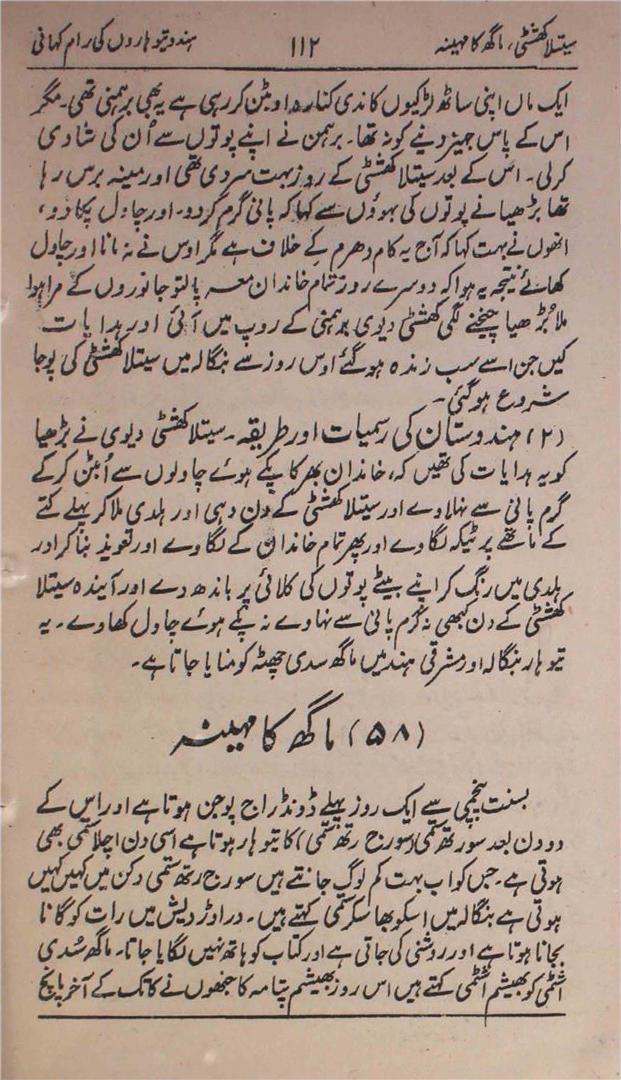 سیتلا کھشٹی، ماگھ کا مہینہ ۱۱۲ ہندو تیوہاروں کی رام کہانی
ایک ماں اپنی ساٹھ لڑکیوں کا ندی کنارہ اوبٹن کر رہی ہے یہ بھی برہمنی تھی۔ مگر
اس کے پاس جہیز دینے کو نہ تھا۔ برہمن نے اپنے پوتوں سے اُن کی شادی
کر لی۔ اس کے بعد سیتلا کھشٹی کے روز بہت سردی تھی اور مینہ برس رہا
تھا بڑھیا نے پوتوں کی بہوؤں سے کہا کہ پانی گرم کر دو۔ اور چاول پکا دو،
انھوں نے بہت کہا کہ آج یہ کام دھرم کے خلاف ہے مگر اوس نے نہ مانا اور چاول
کھائے نتیجہ یہ ہوا کہ دوسرے روز تمام خاندان معہ پالتو جانوروں کے مرا ہوا
ملا بُڑھیا چیخنے لگی کھشٹی دیوی برہمنی کے روپ میں آئی اور ہدایات
کیں جن اسے سب زندہ ہو گئے اوس روز سے بنگالہ میں سیتلا کھشٹی کی پوجا
شروع ہو گئی۔
(۲) ہندوستان کی رسمیات اور طریقہ۔ سیتلا کھشٹی دیوی نے بڑھیا
کو یہ ہدایات کی تھیں کہ، خاندان بھر کا پکے ہوئے چاولوں سے اُبٹن کر کے
گرم پانی سے نہلاوے اور سیتلا کھشٹی کے دن دہی اور ہلدی ملا کر پہلے کتے
کے ماتھے پر ٹیکہ لگاوے اور پھر تمام خاندان کے لگاوے اور تعویذ بنا کر اور
ہلدی میں رنگ کر اپنے بیٹے پوتوں کی کلائی پر باندھ دے اور آیندہ سیتلا
کھشٹی کے دن کبھی نہ گرم پانی سے نہاوے نہ پکے ہوئے چاول کھاوے۔ یہ
تیوہار بنگالہ اور مشرقی ہند میں ماگھ سدی چھٹہ کو منایا جاتا ہے۔
(۵۸) ماگھ کا مہینہ
بسنت پنچمی سے ایک روز پہلے ڈونڈ راج پوجن ہوتا ہے اور اس کے
دو دن بعد سورتھ سپتمی (سورج رتھ سپتمی) کا تیوہار ہوتا ہے اسی دن اچلا سپتمی بھی
ہوتی ہے۔ جس کو اب بہت کم لوگ جانتے ہیں سورج رتھ سپتمی دکن میں کہیں کہیں
ہوتی ہے بنگالہ میں اسکو بھاسکر سپتمی کہتے ہیں۔ دراوڑ دیش میں رات کو گانا
بجانا ہوتا ہے اور روشنی کی جاتی ہے اور کتاب کو ہاتھ نہیں لگایا جاتا۔ ماگھ سُدی
اشٹمی کو بھیشم اشٹمی کہتے ہیں اس روز بھیشم پتامہ کا جنھوں نے کاتک کے آخر پانچ